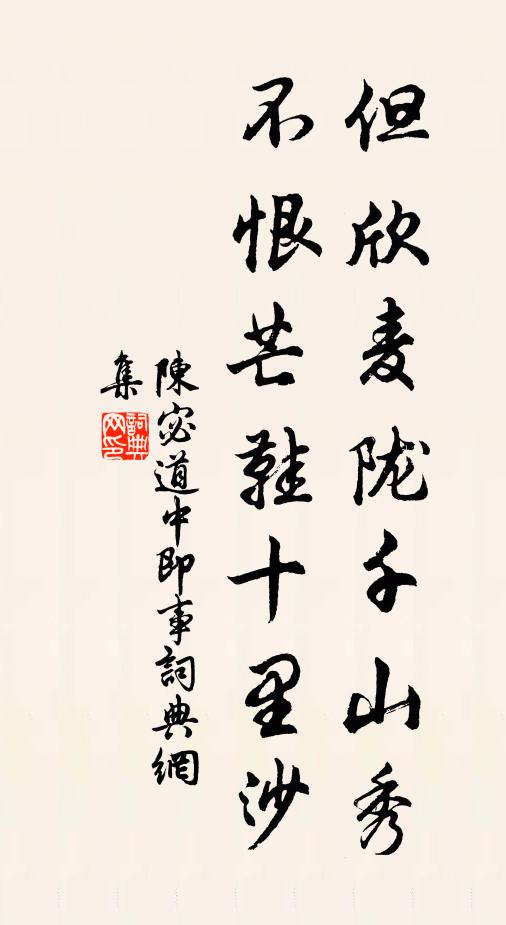 但欣麦陇千山秀
不恨芒鞋十里沙
陳宓道中即事詞典網
集
詞典
网印